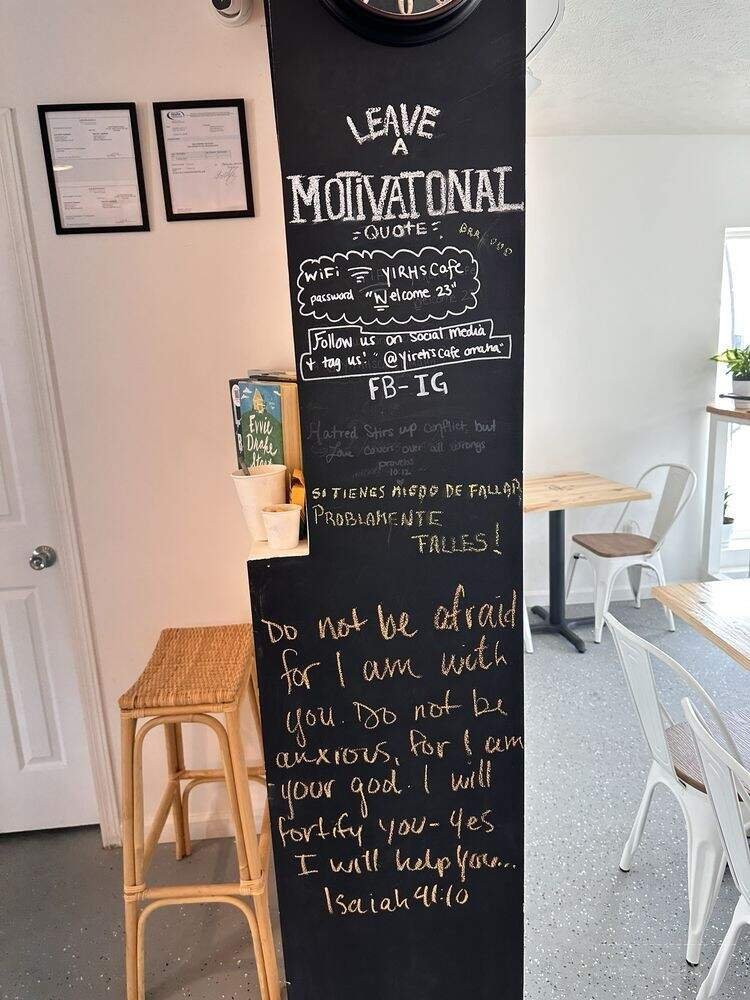 LEAVE
A
MOTIVATONAL
QUOTE
WiFi YIRHS Cafe
password "Welcome 23"
Follow us on social media
+ tag us: "@yireh's cafe omaha"
FB-IG
Hatred Stirs up conflict, but
Love covers over all wrongs
proverbs
10:12
SI TIENES MIEDO DE FALLAR
PROBLAMENTE
FALLES!
Evvie
Drake
Do not be afraid
for I am with
you. Do not be
anxious, for I am
your god. I will
fortify you-yes
I will help you...
Isaiah 41:10